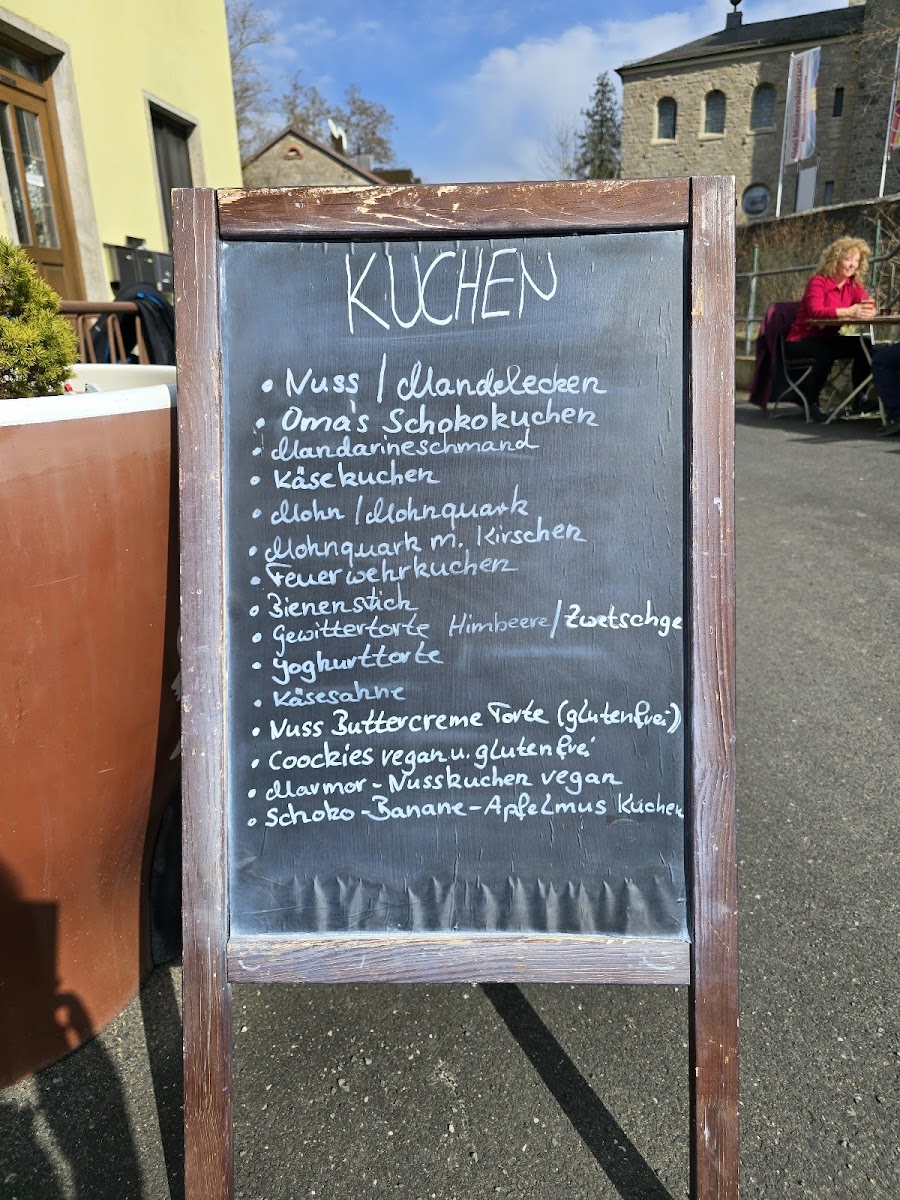 KUCHEN
• Nuss / Mandelecken
• Oma's Schokokuchen
• Mandarineschmand
• Käsekuchen
• Mohn / Mohnquark
• Mohnquark m. Kirschen
• Feuerwehrkuchen
• Bienenstich
• Gewittertorte Himbeere/Zwetschge
• Yoghurttorte
• Käsesahne
• Nuss Buttercreme Torte (glutenfrei)
• Coockies vegan u. glutenfrei
• Marmor-Nusskuchen vegan
• Schoko-Banane-Apfelmus Kuchen